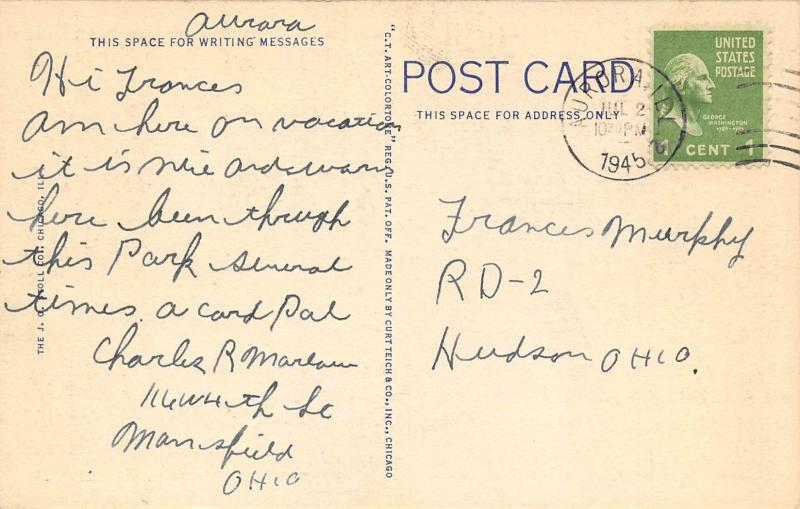 Aurora
THIS SPACE FOR WRITING MESSAGES
Hi Frances
am here on vacation
it is nice and warm
here been through
this Park several
times. a card Pal
Charles R
116 W 4th St
Mansfield
OHIO
THE J. O. STOLL CO., CHICAGO, ILL.
"C.T. ART-COLORTONE" REG. U.S. PAT. OFF. MADE ONLY BY CURT TEICH & CO., INC., CHICAGO
POST CARD
THIS SPACE FOR ADDRESS ONLY
AURORA, ILL.
JUL 2
10 30 PM
1945
UNITED
STATES
POSTAGE
GEORGE
WASHINGTON
1789-1797
1 CENT 1
Frances Murphy
RD-2
Hudson OHIO.